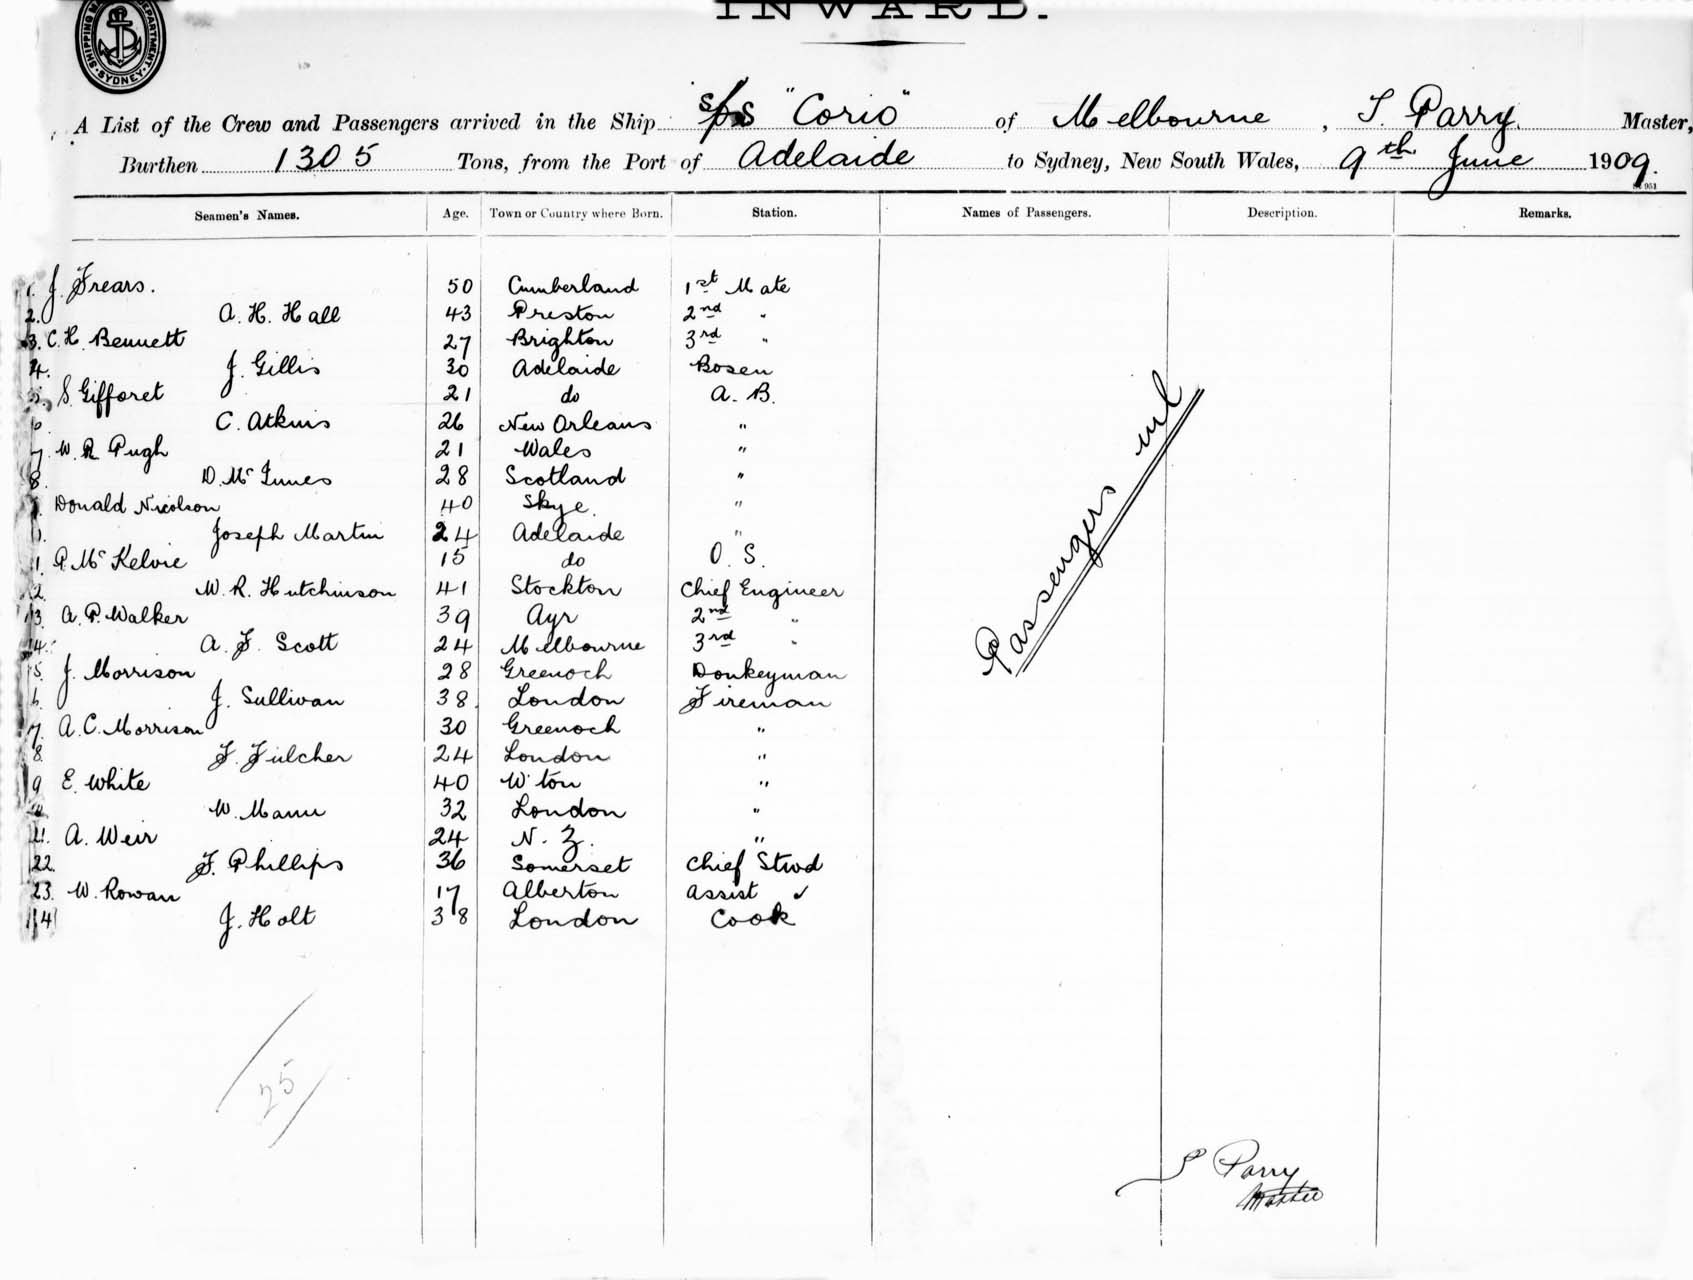 INWARD.
SHIPPING DEPARTMENT SYDNEY
A List of the Crew and Passengers arrived in the Ship S/S "Corio" of Melbourne, T. Parry. Master,
Burthen 1305 Tons, from the Port of Adelaide to Sydney, New South Wales, 9th June 1909.
Seamen's Names. Age. Town or Country where Born. Station. Names of Passengers. Description. Remarks.
1. J. Frears. 50 Cumberland 1st Mate
2. A. H. Hall 43 Preston 2nd "
3. C. H. Bennett 27 Brighton 3rd "
4. J. Gillis 30 Adelaide Bosen
5. S. Gifforet 21 do A. B.
6 C. Atkins 26 New Orleans "
7. W. R. Pugh 21 Wales "
8. D. Mc Innes 28 Scotland "
Donald Nicolson 40 Skye. "
Joseph Martin 24 Adelaide "
1. P. Mc Kelvie 15 do O. S.
2. W. R. Hutchinson 41 Stockton Chief Engineer
13. A. P. Walker 39 Ayr 2nd "
14. A. F. Scott 24 Melbourne 3rd "
5. J. Morrison 28 Greenoch Donkeyman
6. J. Sullivan 38 London Fireman
7. A. C. Morrison 30 Greenoch "
8. F. Fulcher 24 London "
9 E. White 40 W'ton "
W. Mann 32 London "
21. A. Weir 24 N. Z. "
22. F. Phillips 36 Somerset Chief Stwd
23. W. Rowan 17 Alberton Assist ✓
4 J. Holt 38 London Cook
Passengers nil
25
T Parry
Master